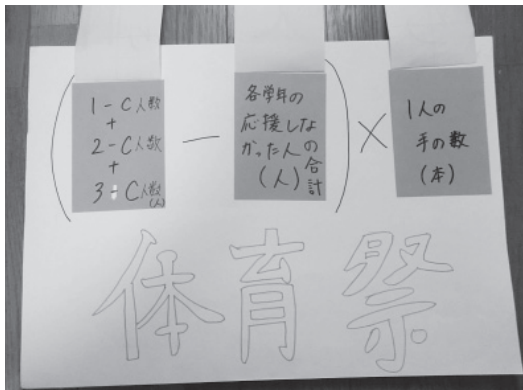 (
1-C人数
+
2-C人数
+
3-C人数
(人)
－
各学年の
応援しな
かった人の
合計
(人)
)
×
1人の
手の数
(本)
体育祭